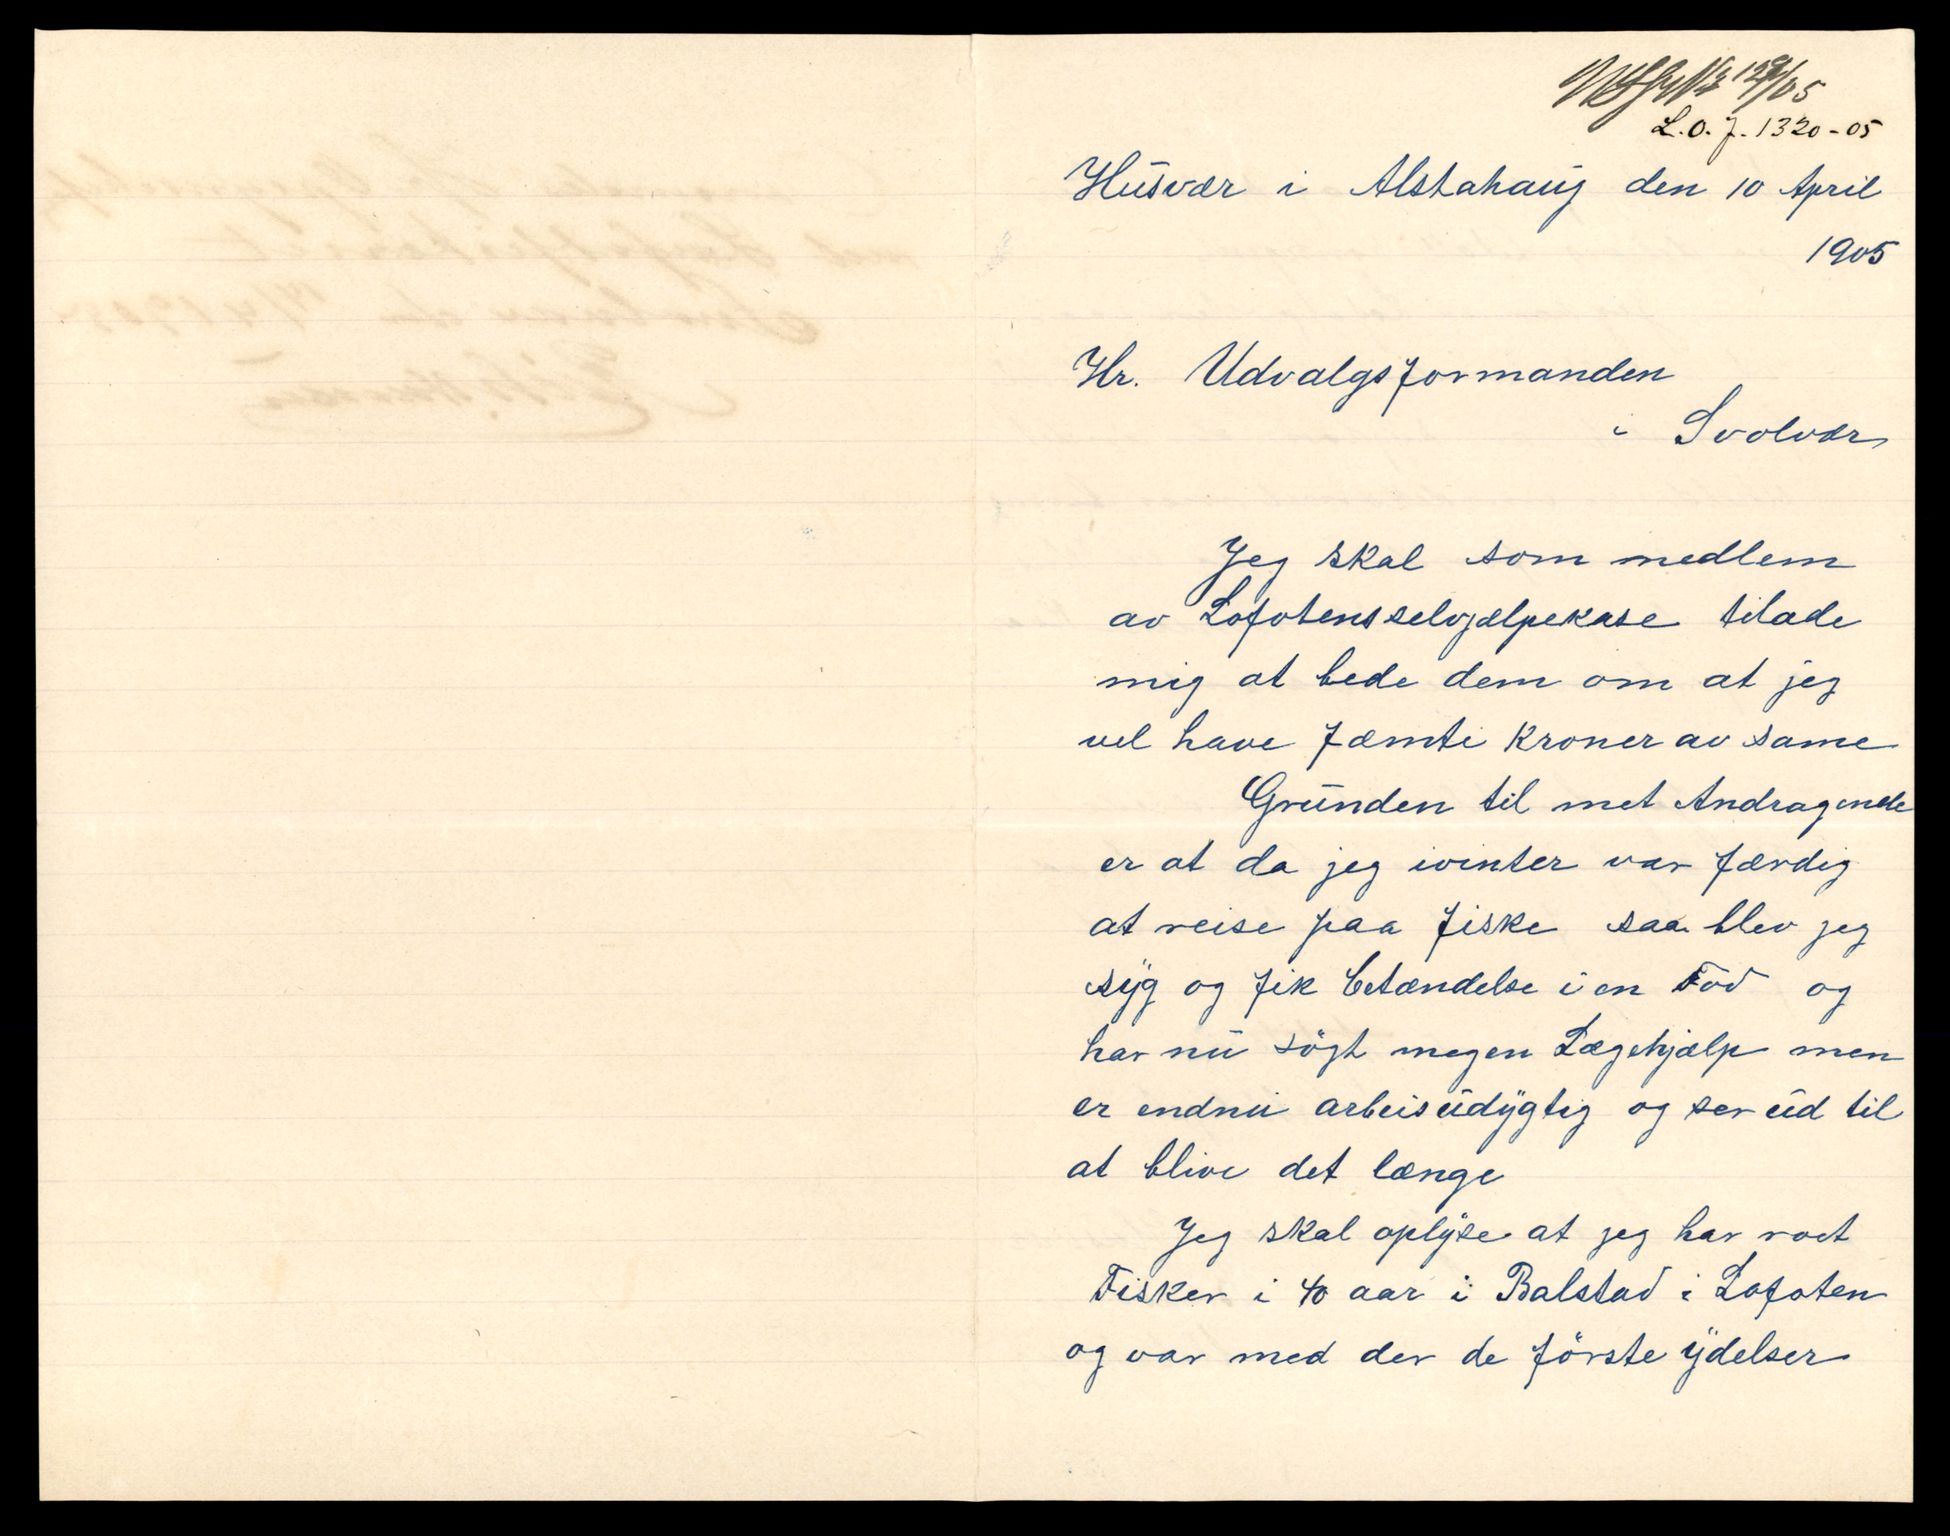 L.O.J. 1320-05
Husvær i Alstahaug den 10 April
1905
Hr. Udvalgsformanden
i Svolvær
Jeg skal som medlem
av Lofotensselvjælpekase tilade
mig at bede dem om at jeg
vel have fæmti kroner av same
Grunden til met Andragende
er at da jeg ivinter var færdig
at reise paa fiske saa blev jeg
syg og fik betændelse i en Fod og
har nu søgt megen Lægehjælp men
er endnu arbeisudygtig og ser ud til
at blive det længe
Jeg skal oplyse at jeg har roet
Fisker i 40 aar i Balstad i Lofoten
og var med der de første ydelser